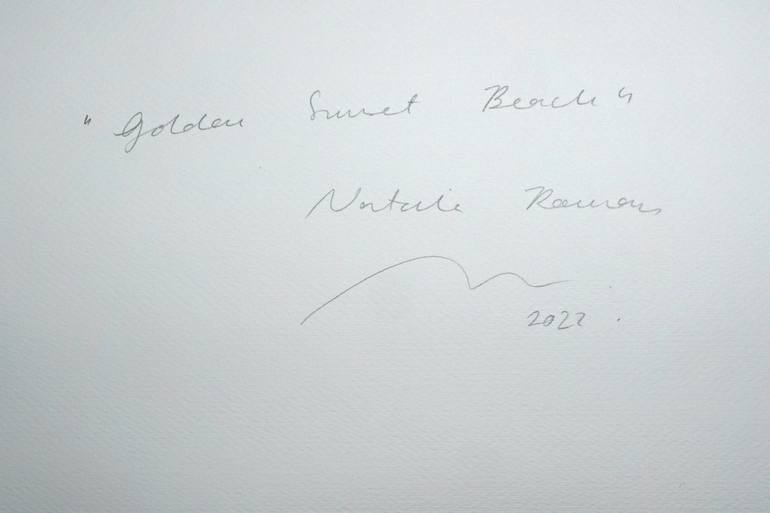 "Golden Sunset Beach"
Natalie
2022.